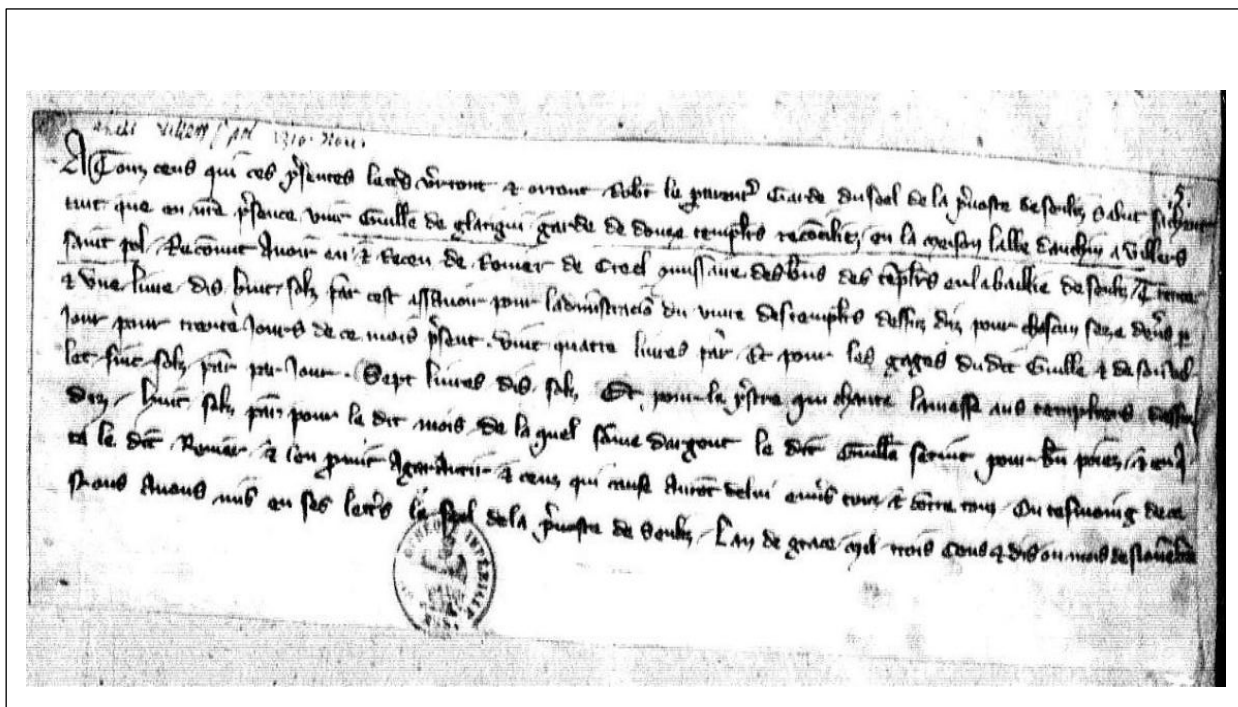 A Touz ceus qui ces p̃sentes lettr̃s v̾ront & orront Rob̾t le parent Garde du seel de la p̾uoste de senliz Salut Sachent
tuit que en nr̃e p̃sence vint Guill̃e de glatigni garde de douze templ̾s reconciliez en la meson labbe dauchin a villers
saint pol. Reconnut Auoir eu & Receu de Renier de Creel des biens des templ̾s en la baillie de senliz
& vne liure dis huit solz par̾ cest assauoir pour ladministracio du viure des templ̾s dessuz diz pour chascun seze den̾s p
Jour pour trente Jours de ce mois p̃sent. vint quatre liures par̾ Et pour les gages du dit Guill̃e & de son vallet
cinc solz par̾ par Jour. Sept liures dis solz Et pour le p̃stre qui chante la messe aus templiers dessus
diz, huit solz par̾ pour le dit mois de la quel sõme dargent le dit Guill̃e se tint pour bñ paiez
le dit Renier & len p̾mist A garantir & ceus qui cause Auront de lui enu̾s touz & cõtre touz En tesmoing de ce
Nous Auons mis en ses lettr̃s le seel de la p̾uoste de Senliz. Lan de grace mil trois cens & dis ou mois de Nouẽbre